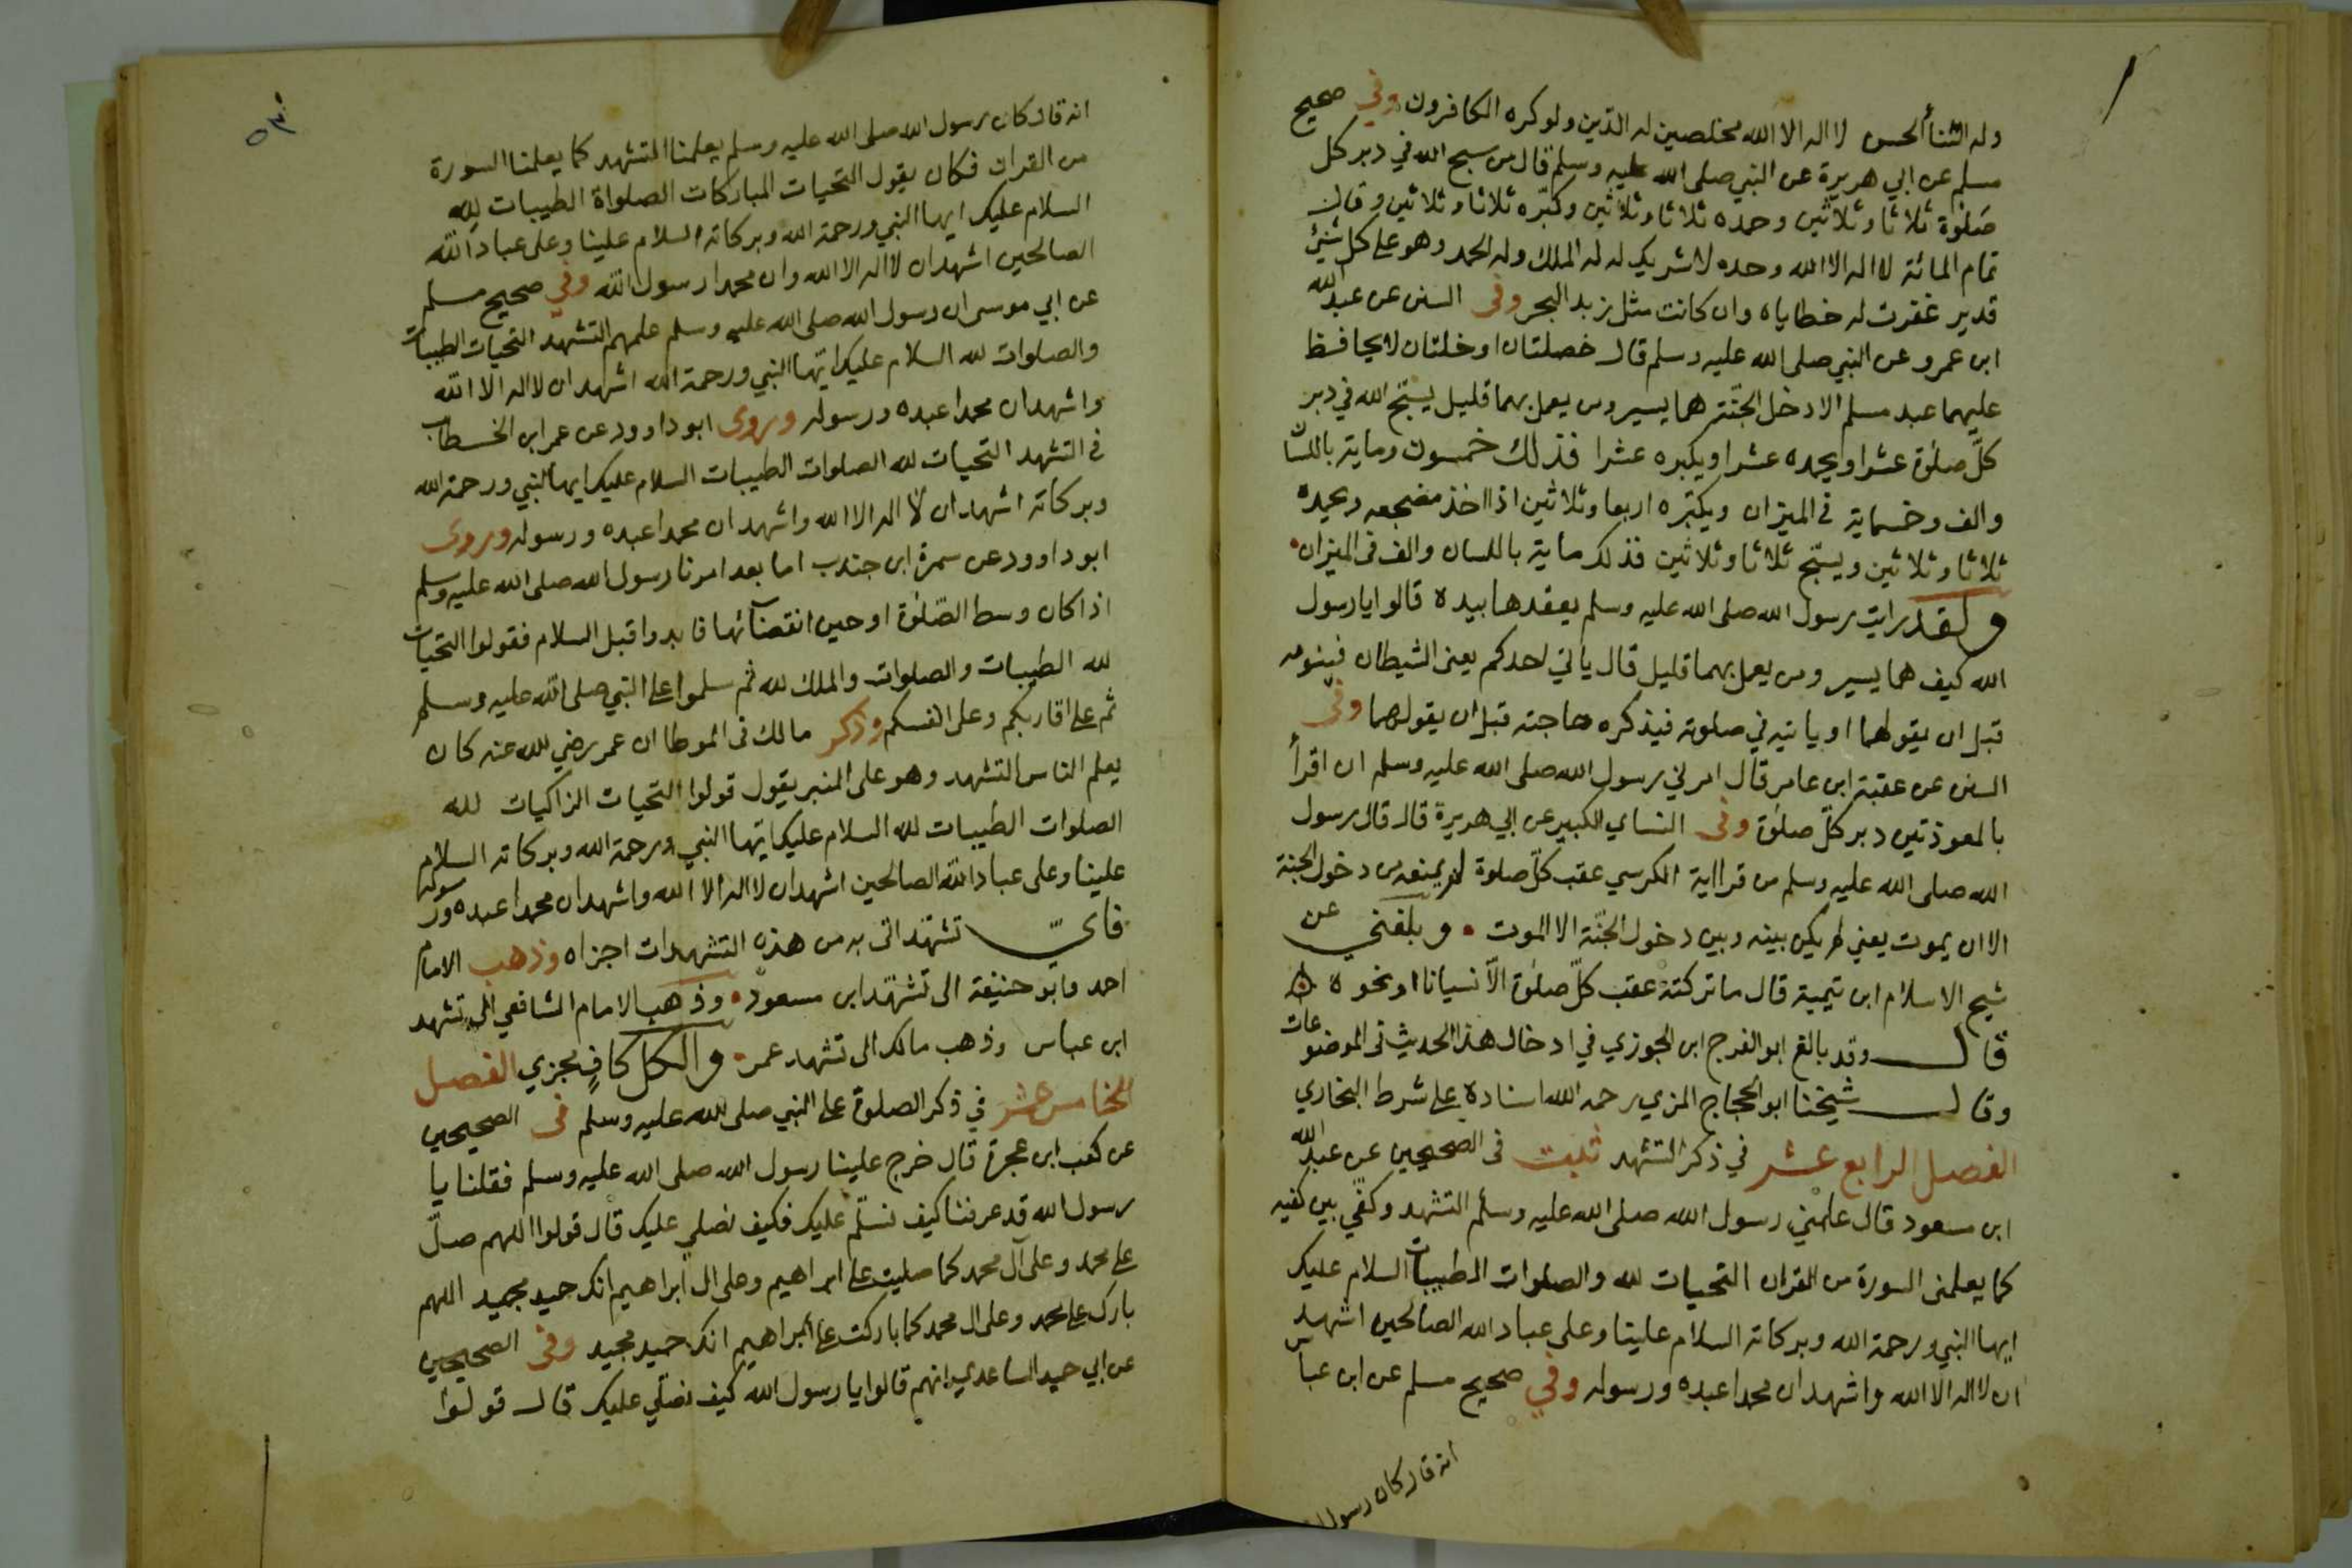 وله الثنأ الحسن لا اله الا الله مخلصين له الدين ولو كره الكافرون وفي صحيح
مسلم عن ابي هريرة عن النبي صلى الله عليه وسلم قال من سبح الله في دبر كل
صلوة ثلاثا وثلاثين وحمده ثلاثا وثلاثين وكبّره ثلاثا وثلاثين وقال
تمام المائة لا اله الا الله وحده لا شريك له له الملك وله الحمد وهو على كل شئ
قدير غفرت له خطاياه وان كانت مثل زبد البحر وفى السنن عن عبد الله
ابن عمرو عن النبي صلى الله عليه وسلم قال خصلتان او خلتان لا يحافظ
عليهما عبد مسلم الا دخل الجنّة هما يسير ومن يعمل بهما قليل يسبّح الله في دبر
كلّ صلوة عشرا ويحمده عشرا ويكبره عشرا فذلك خمسون وماية باللسا
والف وخسماية في الميزان ويكبّره اربعا وثلاثين اذا اخذ مضجعه ويحمده
ثلاثا وثلاثين ويسبّح ثلاثا وثلاثين فذلك ماية باللسان والف في الميزان
ولقد رايت رسول الله صلى الله عليه وسلم يعقدها بيده قالوا يا رسول
الله كيف هما يسير ومن يعمل بهما قليل قال ياتي احدكم يعنى الشيطان فينومه
قبل ان يقولهما او ياتيه في صلوته فيذكره حاجته قبل ان يقولهما وفى
السنن عن عقبة ابن عامر قال امرني رسول الله صلى الله عليه وسلم ان اقرأ
بالمعوذتين دبر كلّ صلوة وفى النساي الكبير عن ابي هريرة قال قال رسول
الله صلى الله عليه وسلم من قرا اية الكرسي عقب كلّ صلوة لم يمنعه من دخول الجنة
الا ان يموت يعني لم يكن بينه وبين دخول الجنّة الا الموت وبلغني عن
شيخ الاسلام ابن تيمية قال ما تركته عقب كلّ صلوة الّا نسيانا او نحوه
قال وقد بالغ ابو الفرج ابن الجوزي في ادخال هذا الحديث في الموضوعات
وقال شيخنا ابو الحجاج المزي رحمه الله اسناده على شرط البخاري
الفصل الرابع عشر في ذكر التشهد ثبت في الصحيحين عن عبد الله
ابن مسعود قال علمني رسول الله صلى الله عليه وسلم التشهد وكفّي بين كفيه
كما يعلمنى السورة من القران التحيات لله والصلوات الطيبات السلام عليك
ايها النبي ورحمة الله وبركاته السلام علينا وعلى عباد الله الصالحين اشهد
ان لا اله الا الله واشهد ان محمدا عبده ورسوله وفي صحيح مسلم عن ابن عباس
انه قال كان رسول
انه قال كان رسول الله صلى الله عليه وسلم يعلمنا التشهد كما يعلمنا السورة
من القران فكان يقول التحيات المباركات الصلواة الطيبات لله
السلام عليك ايها النبي ورحمة الله وبركاته السلام علينا وعلى عباد الله
الصالحين اشهد ان لا اله الا الله وان محمدا رسول الله وفي صحيح مسلم
عن ابي موسى ان رسول الله صلى الله عليه وسلم علمهم التشهد التحيات الطيبات
والصلوات لله السلام عليك ايّها النبي ورحمة الله اشهد ان لا اله الا الله
واشهد ان محمدا عبده ورسوله وروى ابو داوود عن عمر ابن الخطاب
في التشهد التحيات لله الصلوات الطيبات السلام عليك ايها النبي ورحمة الله
وبركاته اشهد ان لا اله الا الله واشهد ان محمدا عبده ورسوله وروى
ابو داوود عن سمرة ابن جندب اما بعد امرنا رسول الله صلى الله عليه وسلم
اذا كان وسط الصّلوة او حين انقضائها فابدوا قبل السلام فقولوا التحيات
لله الطيبات والصلوات والملك لله ثم سلموا على النبي صلى الله عليه وسلم
ثم على اقاربكم وعلى انفسكم وذكر مالك في الموطا ان عمر رضي الله عنه كان
يعلم الناس التشهد وهو على المنبر يقول قولوا التحيات الزاكيات لله
الصلوات الطيبات لله السلام عليك ايّها النبي ورحمة الله وبركاته السلام
علينا وعلى عباد الله الصالحين اشهد ان لا اله الا الله واشهد ان محمدا عبده ورسوله
فايّ تشهّد اتى به من هذه التشهدات اجزاه وذهب الامام
احمد وابو حنيفة الى تشهّد ابن مسعود وذهب الامام الشافعي الى تشهد
ابن عباس وذهب مالك الى تشهد عمر والكل كافٍ مجزي الفصل
الخامس عشر في ذكر الصلوة على النبي صلى الله عليه وسلم في الصحيحين
عن كعب ابن عجرة قال خرج علينا رسول الله صلى الله عليه وسلم فقلنا يا
رسول الله قد عرفنا كيف نسلّم عليك فكيف نصلي عليك قال قولوا اللهم صلّ
على محمد وعلى آل محمد كما صليت على ابراهيم وعلى ال ابراهيم انك حميد مجيد اللهم
بارك على محمد وعلى ال محمد كما باركت على ابراهيم انك حميد مجيد وفى الصحيحين
عن ابي حميد الساعدي انهم قالوا يا رسول الله كيف نصلّي عليك قال قولوا